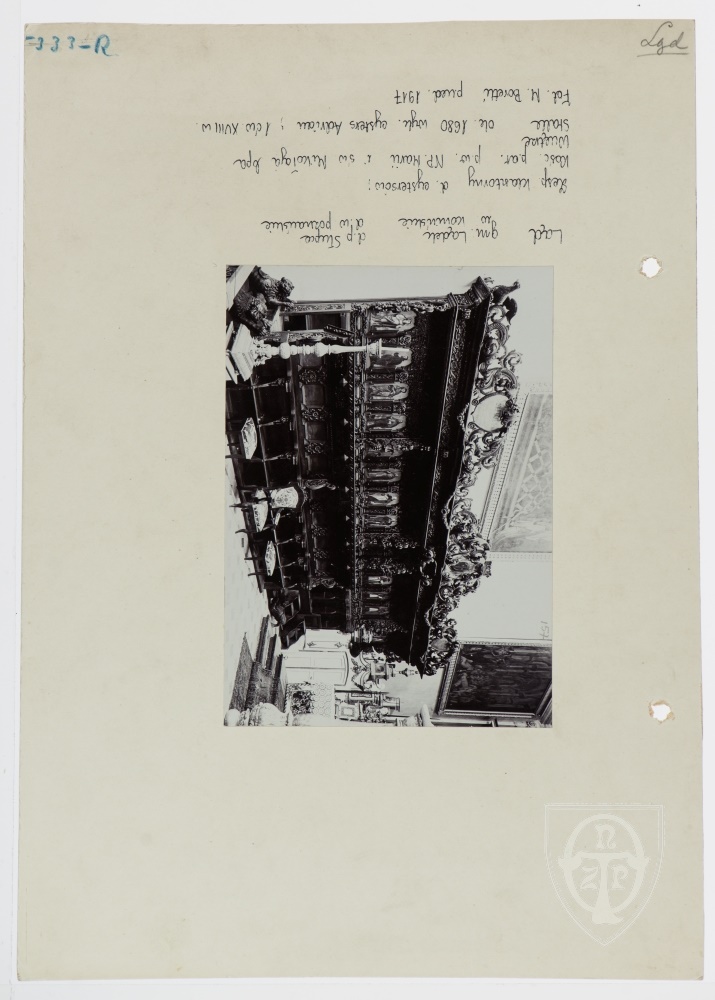 F333-R
Lgd
Ląd gm. Lądek d. p. Słupca
w konińskie d. w poznańskie
Zesp. klasztorny d. cystersów;
Kośc. par. p.w. NP. Marii i św Mikołaja bpa
Wnętrze
Stalle ok. 1680 wyk. cysters Adrian; 1 ćw. XVIII w.
Fot. M. Poretti przed. 1917
NTZP